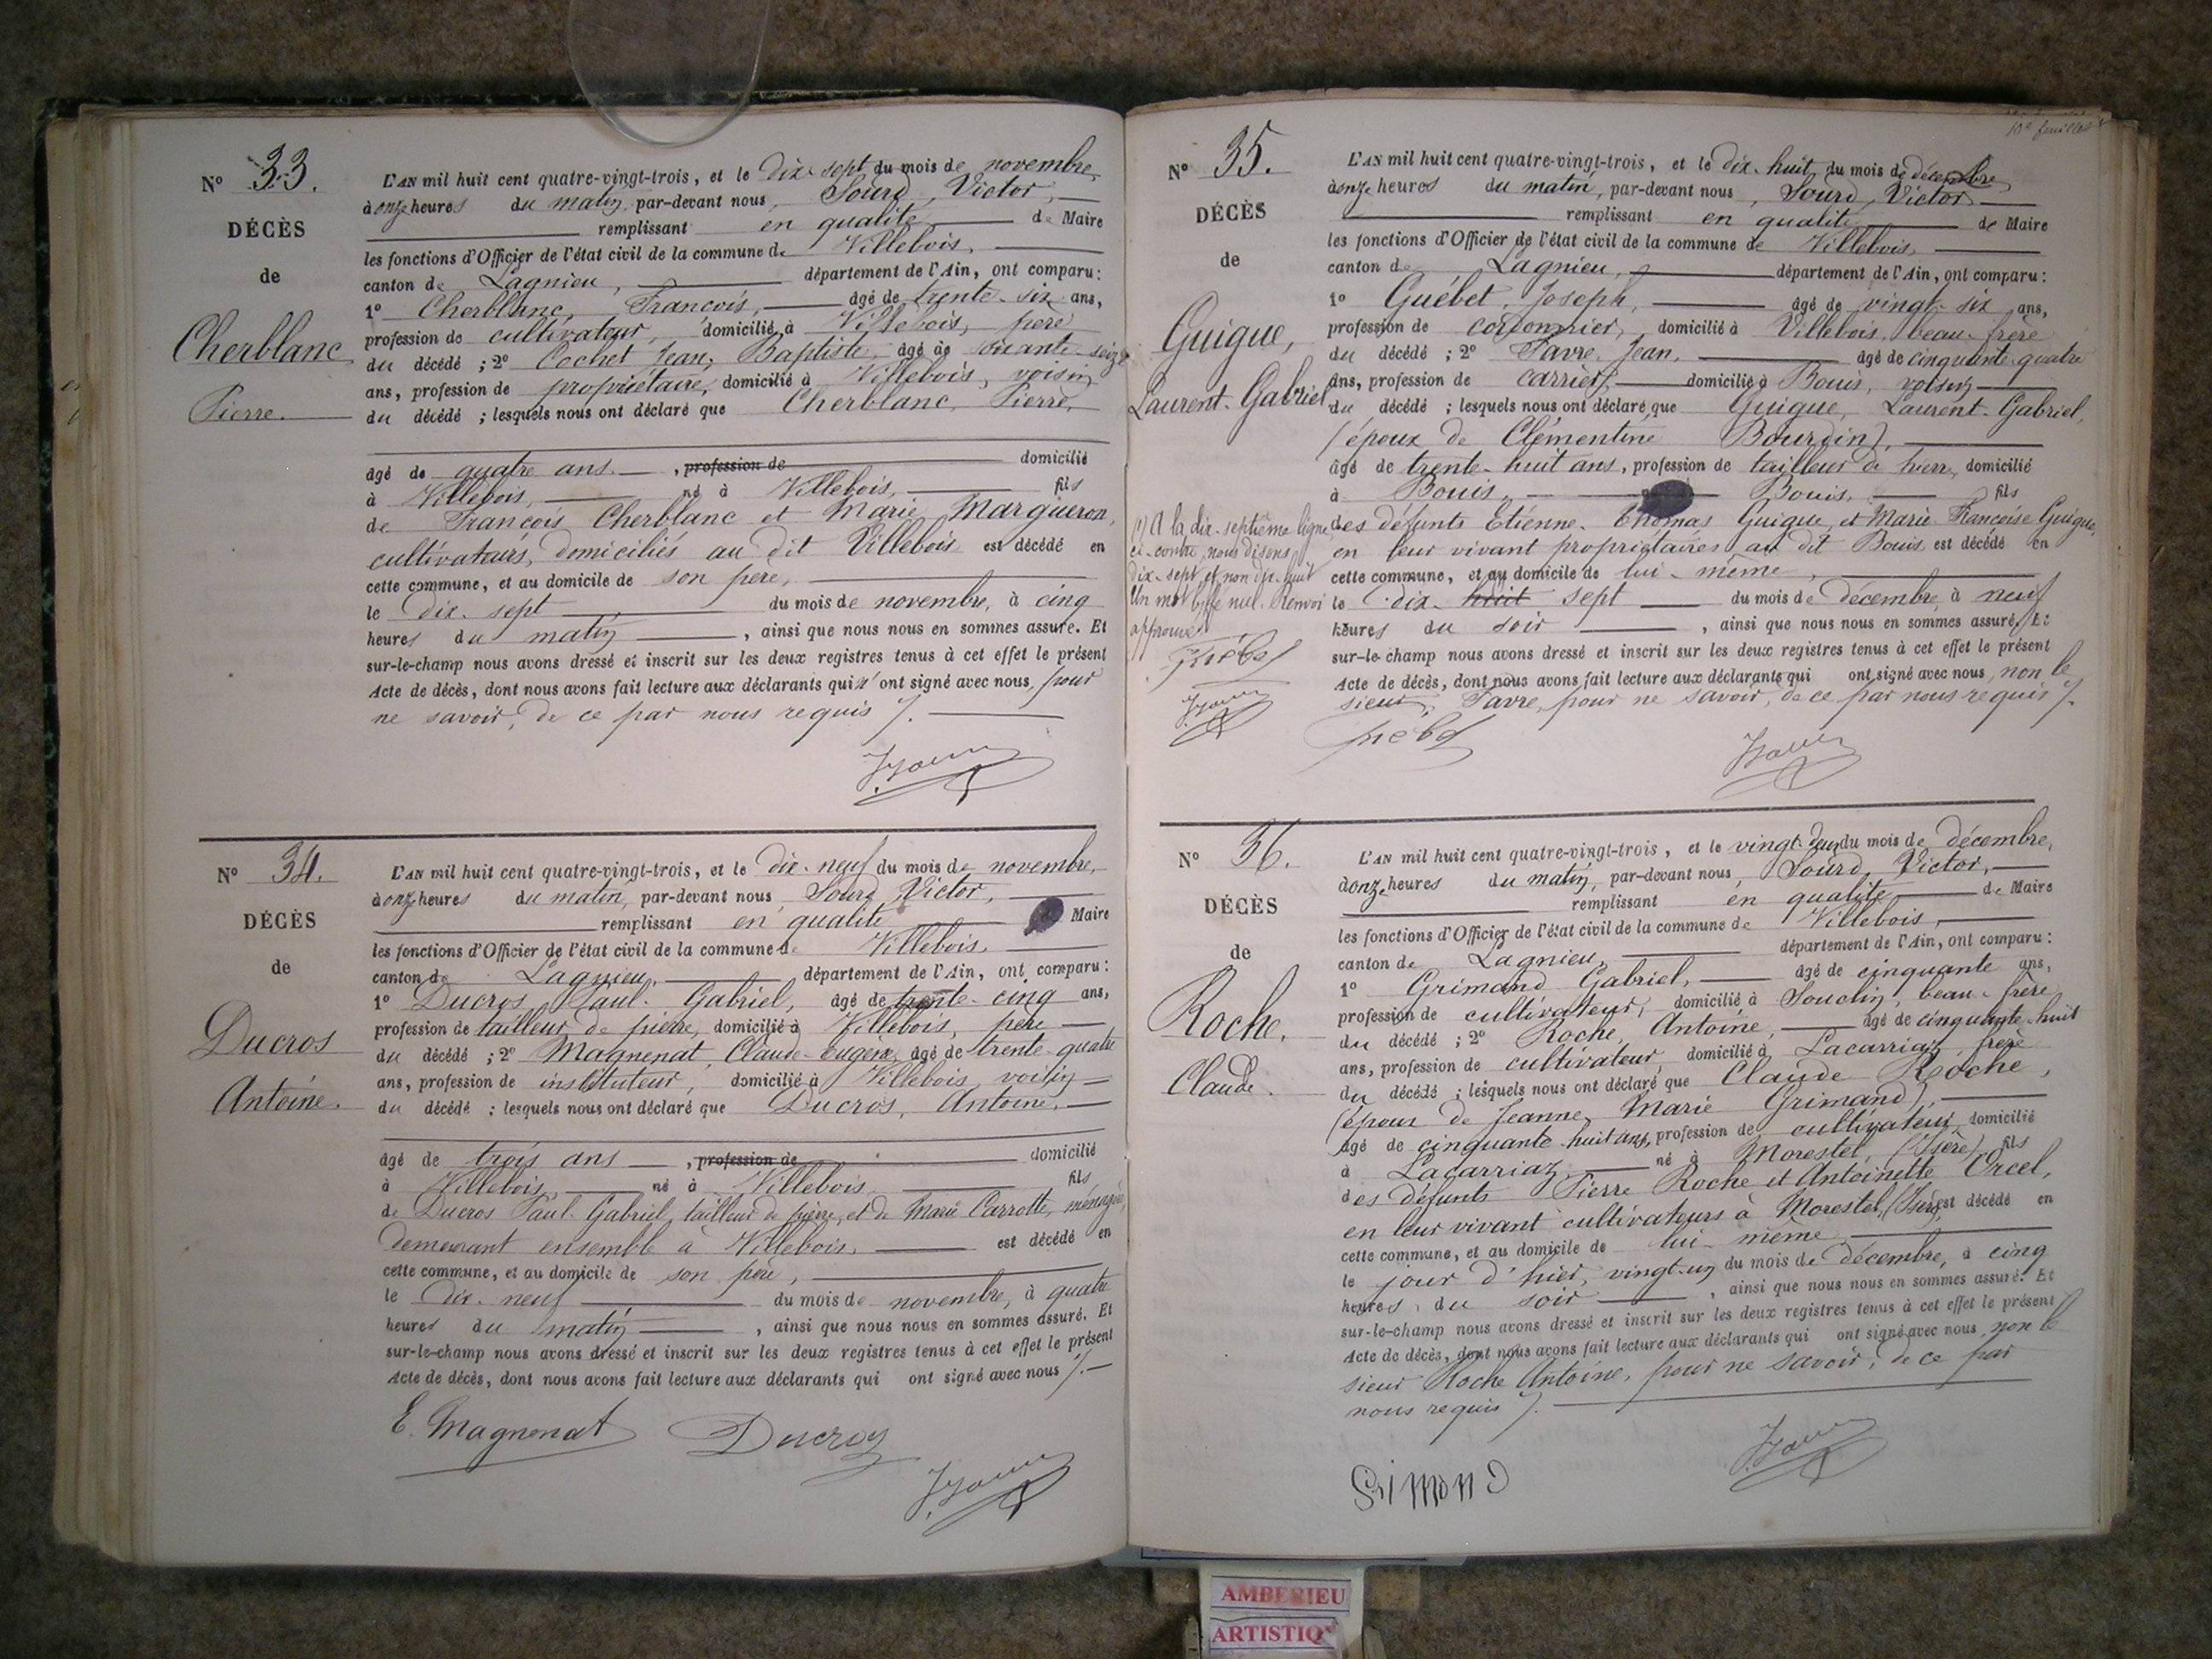 Nº 33.
DÉCÈS
de
Cherblanc
Pierre.
L'AN mil huit cent quatre-vingt-trois, et le dix-sept du mois de novembre,
à onze heures du matin, par-devant nous, Sourd, Victor,
remplissant en qualité de Maire
les fonctions d'Officier de l'état civil de la commune de Villebois,
canton de Lagnieu, département de l'Ain, ont comparu :
1º Cherblanc, François, âgé de trente-six ans,
profession de cultivateur, domicilié à Villebois, père
du décédé ; 2º Cochet Jean, Baptiste, âgé de soixante-seize
ans, profession de propriétaire, domicilié à Villebois, voisin
du décédé ; lesquels nous ont déclaré que Cherblanc, Pierre,
âgé de quatre ans, profession de domicilié
à Villebois, né à Villebois, fils
de François Cherblanc et Marie Margueron,
cultivateurs, domiciliés au dit Villebois est décédé en
cette commune, et au domicile de son père,
le dix-sept du mois de novembre, à cinq
heures du matin, ainsi que nous nous en sommes assuré. Et
sur-le-champ nous avons dressé et inscrit sur les deux registres tenus à cet effet le présent
Acte de décès, dont nous avons fait lecture aux déclarants qui n'ont signé avec nous, pour
ne savoir, de ce par nous requis /.
Nº 34.
DÉCÈS
de
Ducros
Antoine.
L'AN mil huit cent quatre-vingt-trois, et le dix-neuf du mois de novembre,
à onze heures du matin, par-devant nous Sourd Victor,
remplissant en qualité Maire
les fonctions d'Officier de l'état civil de la commune de Villebois,
canton de Lagnieu, département de l'Ain, ont comparu :
1º Ducros, Paul-Gabriel, âgé de trente-cinq ans,
profession de tailleur de pierre, domicilié à Villebois, père
du décédé ; 2º Magnenat, Claude-Eugène, âgé de trente-quatre
ans, profession de instituteur, domicilié à Villebois, voisin
du décédé ; lesquels nous ont déclaré que Ducros, Antoine,
âgé de trois ans, profession de domicilié
à Villebois, né à Villebois fils
de Ducros Paul-Gabriel, tailleur de pierre, et de Marie Carrotte, ménagère,
demeurant ensemble à Villebois, est décédé en
cette commune, et au domicile de son père,
le dix-neuf du mois de novembre, à quatre
heures du matin, ainsi que nous nous en sommes assuré. Et
sur-le-champ nous avons dressé et inscrit sur les deux registres tenus à cet effet le présent
Acte de décès, dont nous avons fait lecture aux déclarants qui ont signé avec nous /.
E. Magnenat Ducros
10e feuillet
Nº 35.
DÉCÈS
de
Guigue,
Laurent-Gabriel
L'AN mil huit cent quatre-vingt-trois, et le dix-huit du mois de décembre
à onze heures du matin, par-devant nous, Sourd, Victor
remplissant en qualité de Maire
les fonctions d'Officier de l'état civil de la commune de Villebois,
canton de Lagnieu, département de l'Ain, ont comparu :
1º Guébet, Joseph, âgé de vingt-six ans,
profession de cordonnier, domicilié à Villebois, beau-frère
du décédé ; 2º Favre, Jean, âgé de cinquante-quatre
ans, profession de carrier, domicilié à Bouis, voisin
du décédé ; lesquels nous ont déclaré que Guigue, Laurent-Gabriel,
(époux de Clémentine Bourdin),
âgé de trente-huit ans, profession de tailleur de pierre, domicilié
à Bouis, Bouis, fils
des défunts Etienne-Thomas Guigue, et Marie Françoise Guigue,
en leur vivant propriétaires au dit Bouis est décédé en
cette commune, et au domicile de lui-même,
le dix-huit sept du mois de décembre, à neuf
heures du soir, ainsi que nous nous en sommes assuré. Et
sur-le-champ nous avons dressé et inscrit sur les deux registres tenus à cet effet le présent
Acte de décès, dont nous avons fait lecture aux déclarants qui ont signé avec nous, non le
sieur Favre, pour ne savoir, de ce par nous requis /.
(1) A la dix-septième ligne
ci-contre, nous disons
dix-sept et non dix-huit
Un mot biffé nul. Renvoi
approuvé.
Nº 36.
DÉCÈS
de
Roche,
Claude.
L'AN mil huit cent quatre-vingt-trois, et le vingt-deux du mois de décembre,
à onze heures du matin, par-devant nous, Sourd, Victor,
remplissant en qualité de Maire
les fonctions d'Officier de l'état civil de la commune de Villebois,
canton de Lagnieu, département de l'Ain, ont comparu :
1º Grimand Gabriel, âgé de cinquante ans,
profession de cultivateur, domicilié à Souclin, beau-frère
du décédé ; 2º Roche, Antoine, âgé de cinquante-huit
ans, profession de cultivateur, domicilié à Lacarriaz, frère
du décédé ; lesquels nous ont déclaré que Claude Roche,
(époux de Jeanne, Marie Grimand),
âgé de cinquante-huit ans, profession de cultivateur, domicilié
à Lacarriaz, né à Morestel, (Isère) fils
des défunts Pierre Roche et Antoinette Orcel,
en leur vivant cultivateurs à Morestel, (Isère) est décédé en
cette commune, et au domicile de lui-même
le jour d'hier, vingt-un du mois de décembre, à cinq
heures du soir, ainsi que nous nous en sommes assuré. Et
sur-le-champ nous avons dressé et inscrit sur les deux registres tenus à cet effet le présent
Acte de décès, dont nous avons fait lecture aux déclarants qui ont signé avec nous, non le
sieur Roche Antoine, pour ne savoir, de ce par
nous requis /.
Grimond
AMBERIEU
ARTISTIQ